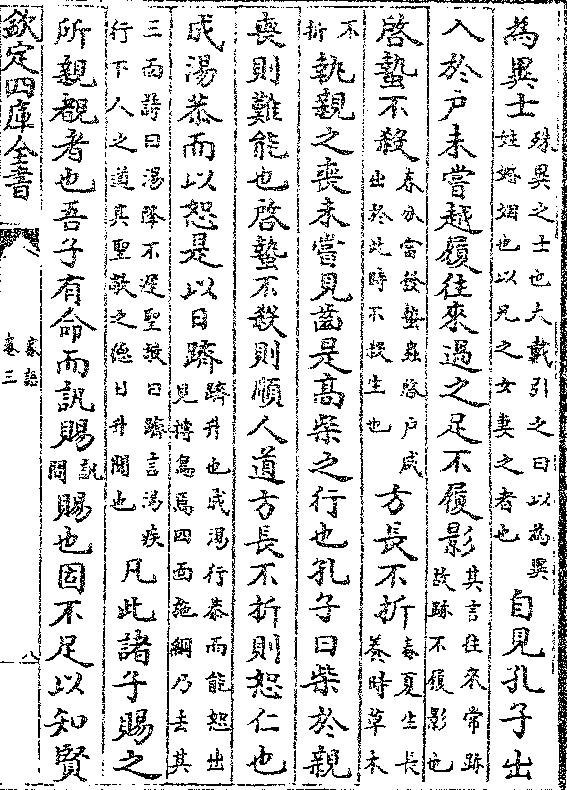 為異士殊異之士也大戴引之曰以為異姓婚姻也以兄之女妻之者也自見孔子出
入於户未嘗越履往來過之足不履影其言往來常跡故跡不履影也
啓蟄不殺春分當發蟄蟲啓户咸出於此時不殺生也方長不折春夏生長養時草木
不折執親之喪未嘗見齒是髙柴之行也孔子曰柴於親
喪則難能也啓蟄不殺則順人道方長不折則恕仁也
成湯恭而以恕是以日躋躋升也成湯行恭而能恕出見搏鳥焉四面施網乃去其
三面詩曰湯降不遲聖敬曰躋言湯疾行下人之道其聖敬之德日升聞也凡此諸子賜之
所親覩者也吾子有命而訊賜訊問賜也固不足以知賢
欽定四庫全書
家語
卷三
八